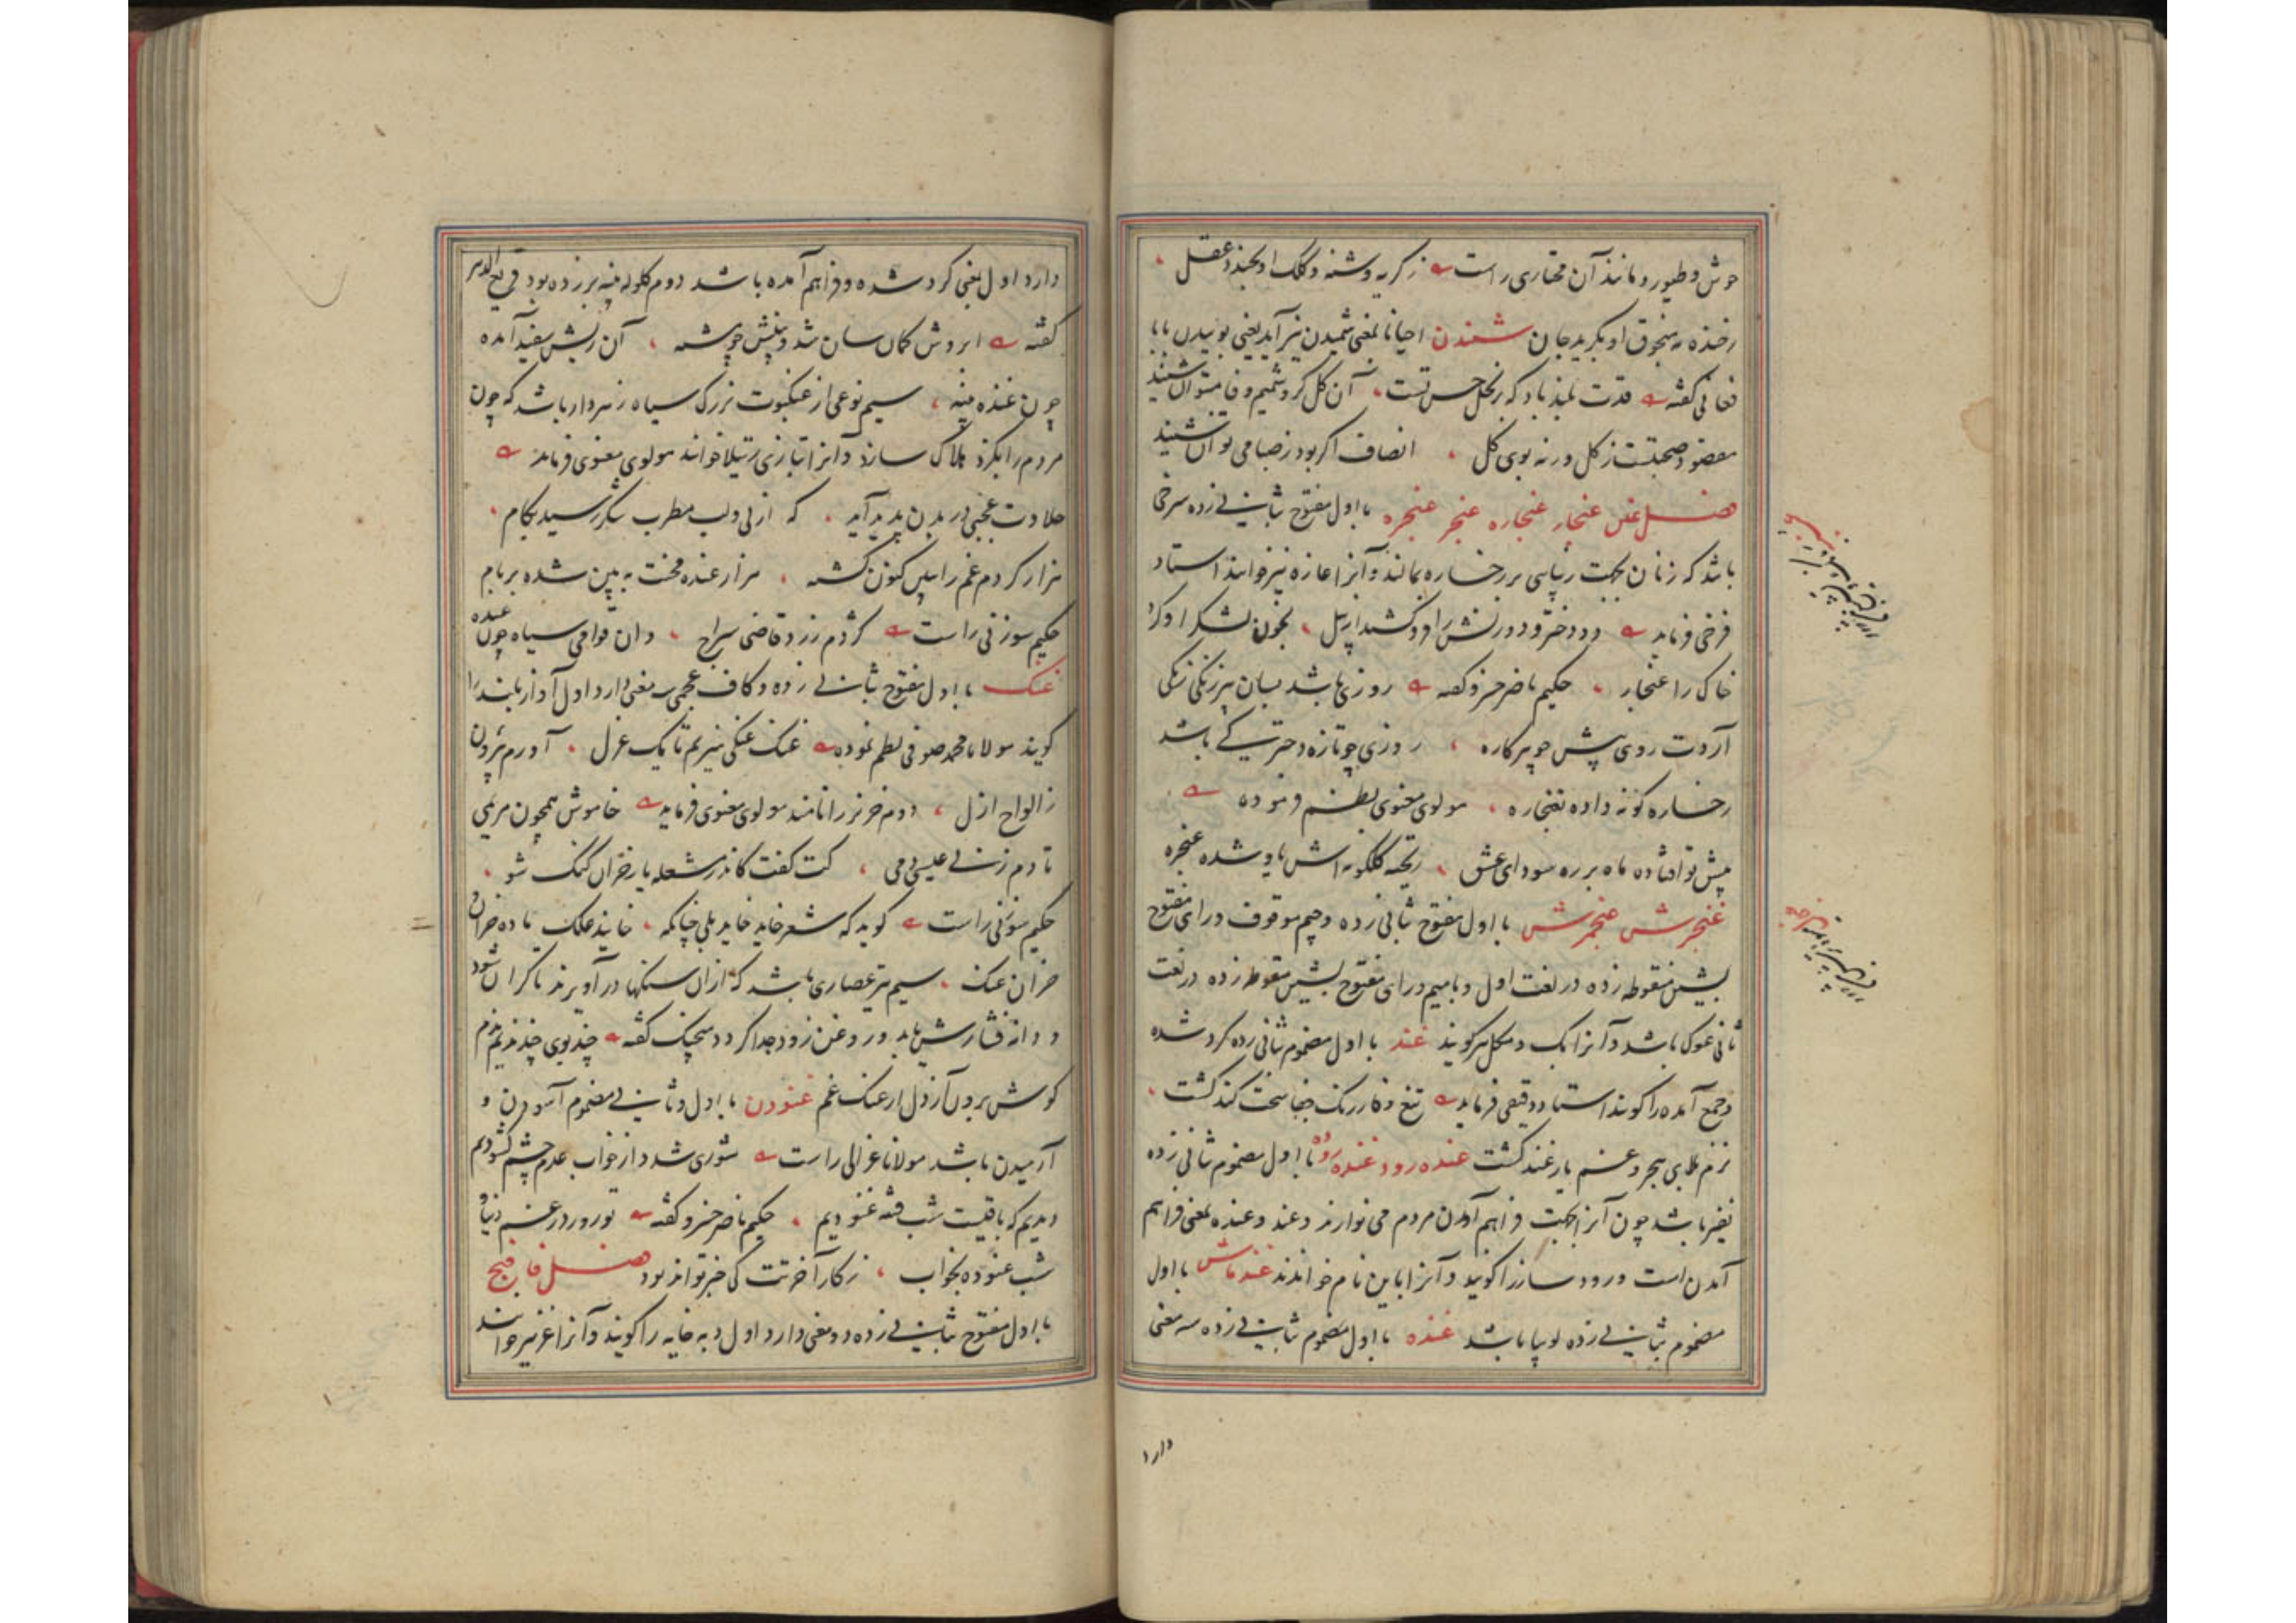 وحش و طیور و مانند آن مختاری راست زکریه وشنه و کلک او بخندد عقل
رخنده سنجوق او بگرید جان شنیدن احیانا بمعنی شمیدن نیز آید یعنی بوییدن بابا
فغانی گفته قدت بلند باد که نخل حس تست آن گل که در شمیم وفا میتوان شنید
مقصود صحبتست ز گل ورنه بوی گل انصاف اگر بود ز صبا می توان شنید
فصل غین غنجار غنجاره غنجر غنجره با اول مفتوح بثانی زده سرخی
باشد که زنان بجهت زیبایی بر رخساره بمالند و آنرا غازه نیز خوانند استاد
فرخی فرماید دو دختر و دو زنش را فرو کشید از پیل بخون لشکر او کرد
خاک را غنجار حکیم ناصر خسرو گفته روزی باشد بسان پیر زنکی زنکی
آردت روی پیش چو پرکاره روزی چو تازه دخترکی باشد
رخساره گونه داده بغنجاره مولوی معنوی نظم فرموده
پیش تو افتاده ماه بر ره سودای عشق ریخته گلگونه اش یاوه شده غنجره
غنجرش غنجمرش با اول مفتوح بثانی زده و جیم موقوف و رای مفتوح
بشین منقوطه زده در لغت اول و با میم و رای مفتوح بشین منقوطه زده در لغت
ثانی غوک باشد و آنرا بک و مکل نیز گویند غند با اول مضموم بثانی زده گرد شده
و جمع آمده را گویند استاد دقیقی فرماید تیغ وفا ز زنگ جفا سخت کند گشت
نرم بلای هجر و غم یار غند گشت غنده رود غنده روه با اول مضموم بثانی زده
نفیر باشد چون آنرا بجهت فراهم آوردن مردم می نوازند و غند و غنده بمعنی فراهم
آمدن است و رود ساز را گویند و آنرا باین نام خواندند غندماش با اول
مضموم بثانی زده لوبیا باشد غنده با اول مضموم بثانی زده سه معنی
دارد
دارد اول بمعنی گرد شده و فراهم آمده باشد دوم گلوله پنبه بر زده بود قریع الدهر
گفته ابروش کمان سان شد و بینیش چو پشه آن ریش سفید آمده
چون غنده پنبه سیم نوعی از عنکبوت بزرگ سیاه زهردار باشد که چون
مردم را بگزد هلاک سازد و آنرا بتازی رتیلا خوانند مولوی معنوی فرماید
حلاوت عجبی در بدن پدید آید که از نی و لب مطرب شکر رسید بکام
هزار کژدم غم را ببین کنون کشته هزار غنده محنت ببین شده بر بام
حکیم سوزنی راست کژدم زرد قاضی سراج وان قوامی سیاه چون غنده
غنگ با اول مفتوح بثانی زده و کاف عجمی سه معنی دارد اول آواز بلند را
گویند مولانا محمد صوفی نظم نموده غنک غنکی نیز بم تا یک غزل آورم بیرون
ز الواح ازل دوم خر نر را نامند مولوی معنوی فرماید خاموش همچون مریمی
تا دم زنی عیسی دمی کت گفت کاندر مشعله یار خران غنگ شو
حکیم سوزنی راست گوید که شعر خاید خاید بلی چنانکه خایند ملک ماده خران
خران غنک سیم تیر عصاری باشد که ازان سنگها در آویزند تا گران شود
و دانه فشارش یابد و روغن زود جدا گردد منجیک گفته چند بوی چند ندیم ندم
گوش برون آر دل از غنک غم غنودن با اول و ثانی مضموم آسودن و
آرمیدن باشد مولانا غزالی راست شوری شد و از خواب عدم چشم گشودیم
دیدیم که باقیست شب فتنه غنودیم حکیم ناصر خسرو گفته تو روز در غم دنیا و
شب غنوده بخواب ز کار آخرتت کی خبر تواند بود فصل فا فنج
با اول مفتوح بثانی زده دو معنی دارد اول دبه خایه را گویند و آنرا غر نیز خوانند